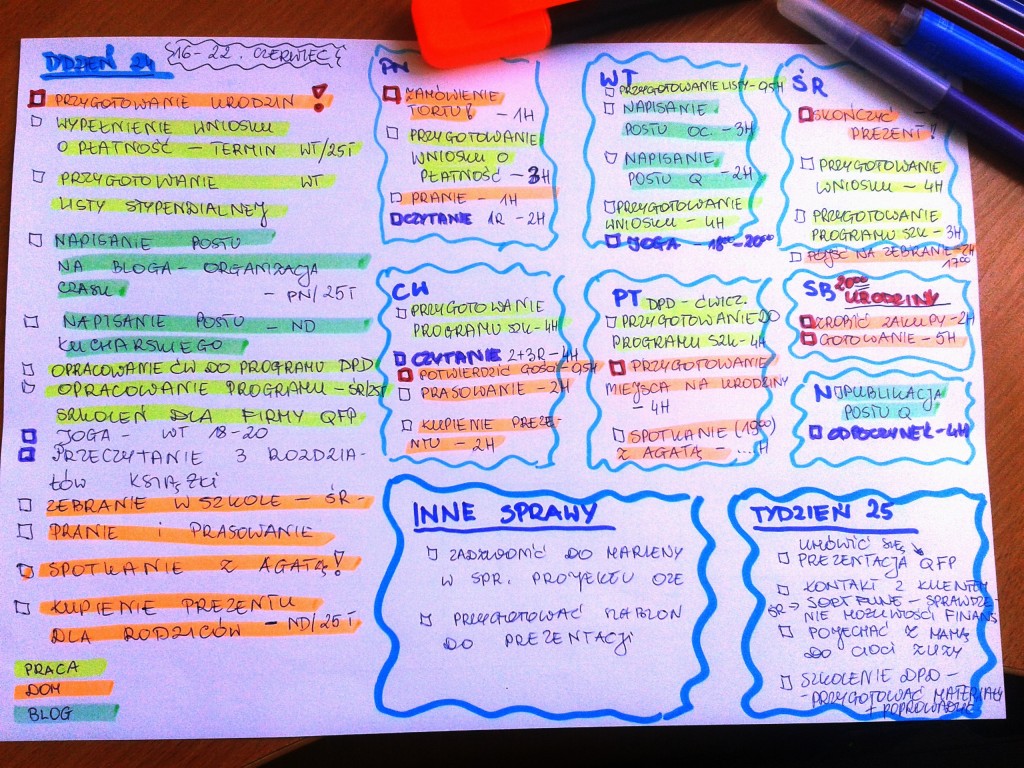 16-22. CZERWIEC
PRZYGOTOWANIE URODZIN !
WYPEŁNIENIE WNIOSKU
O PŁATNOŚĆ - TERMIN WT/25T
PRZYGOTOWANIE WT
LISTY STYPENDIALNEJ
NAPISANIE POSTU
NA BLOGA - ORGANIZACJA
CZASU - PN/25T
NAPISANIE POSTU - ND
KUCHARSKIEGO
OPRACOWANIE ĆW DO PROGRAMU DPD
OPRACOWANIE PROGRAMU - ŚR/25T
SZKOLEŃ DLA FIRMY QFP
JOGA - WT 18-20
PRZECZYTANIE 3 ROZDZIA-
ŁÓW KSIĄŻKI
ZEBRANIE W SZKOLE - ŚR-
PRANIE i PRASOWANIE
SPOTKANIE Z AGATĄ!
KUPIENIE PREZENTU
DLA RODZICÓW - ND/25T
PRACA
DOM
BLOG
PN
ZAMÓWIENIE
TORTU! - 1H
PRZYGOTOWANIE
WNIOSKU O
PŁATNOŚĆ - 3H
PRANIE - 1H
CZYTANIE 1R - 2H
WT
PRZYGOTOWANIE LISTY - 0,5H
NAPISANIE
POSTU OC. - 3H
NAPISANIE
POSTU Q - 2H
PRZYGOTOWANIE
WNIOSKU - 4H
JOGA - 18⁰⁰-20⁰⁰
ŚR
SKOŃCZYĆ
PREZENT!
PRZYGOTOWANIE
WNIOSKU - 4H
PRZYGOTOWANIE
PROGRAMU SZK - 3H
PÓJŚĆ NA ZEBRANIE - 2H
17⁰⁰
CW
PRZYGOTOWANIE
PROGRAMU SZK - 4H
CZYTANIE 2+3R - 4H
POTWIERDZIĆ GOŚCI - 0,5H
PRASOWANIE - 2H
KUPIENIE PREZE-
NTU - 2H
PT DPD - ĆWICZ.
PRZYGOTOWANIE DO
PROGRAMU SZK - 4H
PRZYGOTOWANIE
MIEJSCA NA URODZINY
- 4H
SPOTKANIE (19⁰⁰)
Z AGATĄ - ...H
SB 20⁰⁰
URODZINY
ZROBIĆ ZAKUPY - 2H
GOTOWANIE - 5H
N PUBLIKACJA
POSTU Q
ODPOCZYNEK - 4H
INNE SPRAWY
ZADZWONIĆ DO MARLENY
W SPR. PROJEKTU OZE
PRZYGOTOWAĆ SZABLON
DO PREZENTACJI
TYDZIEŃ 25
UMÓWIĆ SIĘ
PREZENTACJA QFP
KONTAKT Z KLIENTEM
ŚR → SOFT TUNE - SPRAWDZE-
NIE MOŻLIWOŚCI FINANS
POJECHAĆ Z MAMĄ
DO CIOCI ZUZY
SZKOLENIE DPD -
- PRZYGOTOWAĆ MATERIAŁY
+ POPROWADZIĆ